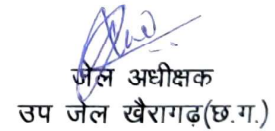 जेल अधीक्षक
उप जेल खैरागढ़(छ.ग.)